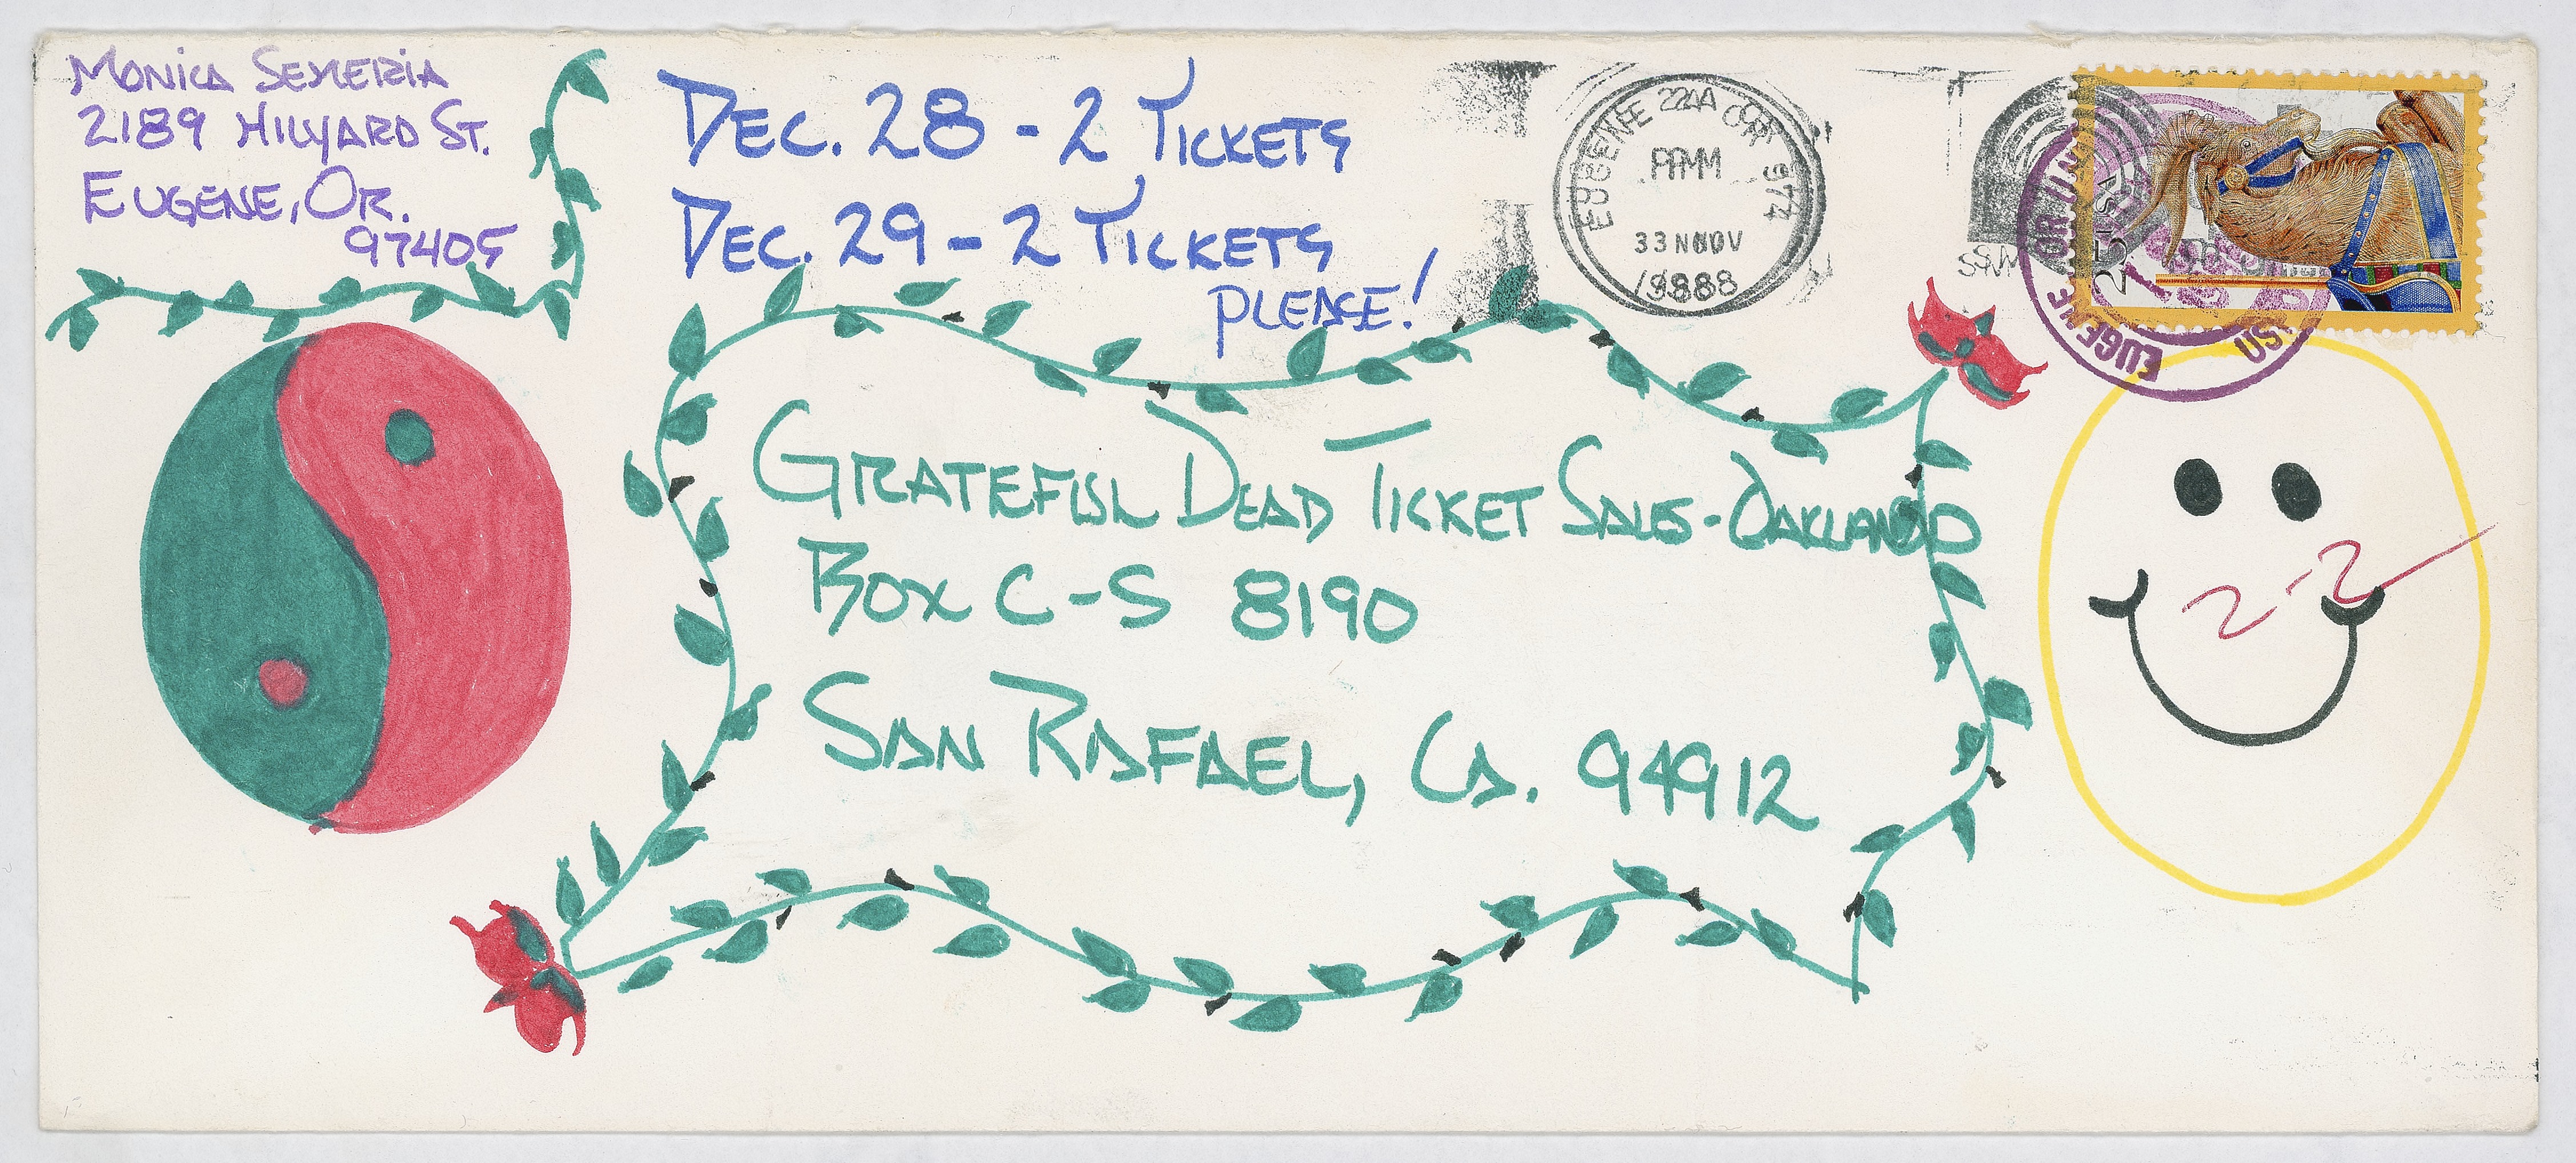 MONICA
2189 HILYARD ST.
EUGENE, OR.
97405
DEC. 28 - 2 TICKETS
DEC. 29 - 2 TICKETS
PLEASE!
EUGENE OR 974
PM
3 NOV
1988
EUGENE OR
25 USA
GRATEFUL DEAD TICKET SALES - OAKLAND
BOX C-S 8190
SAN RAFAEL, CA. 94912
2-2